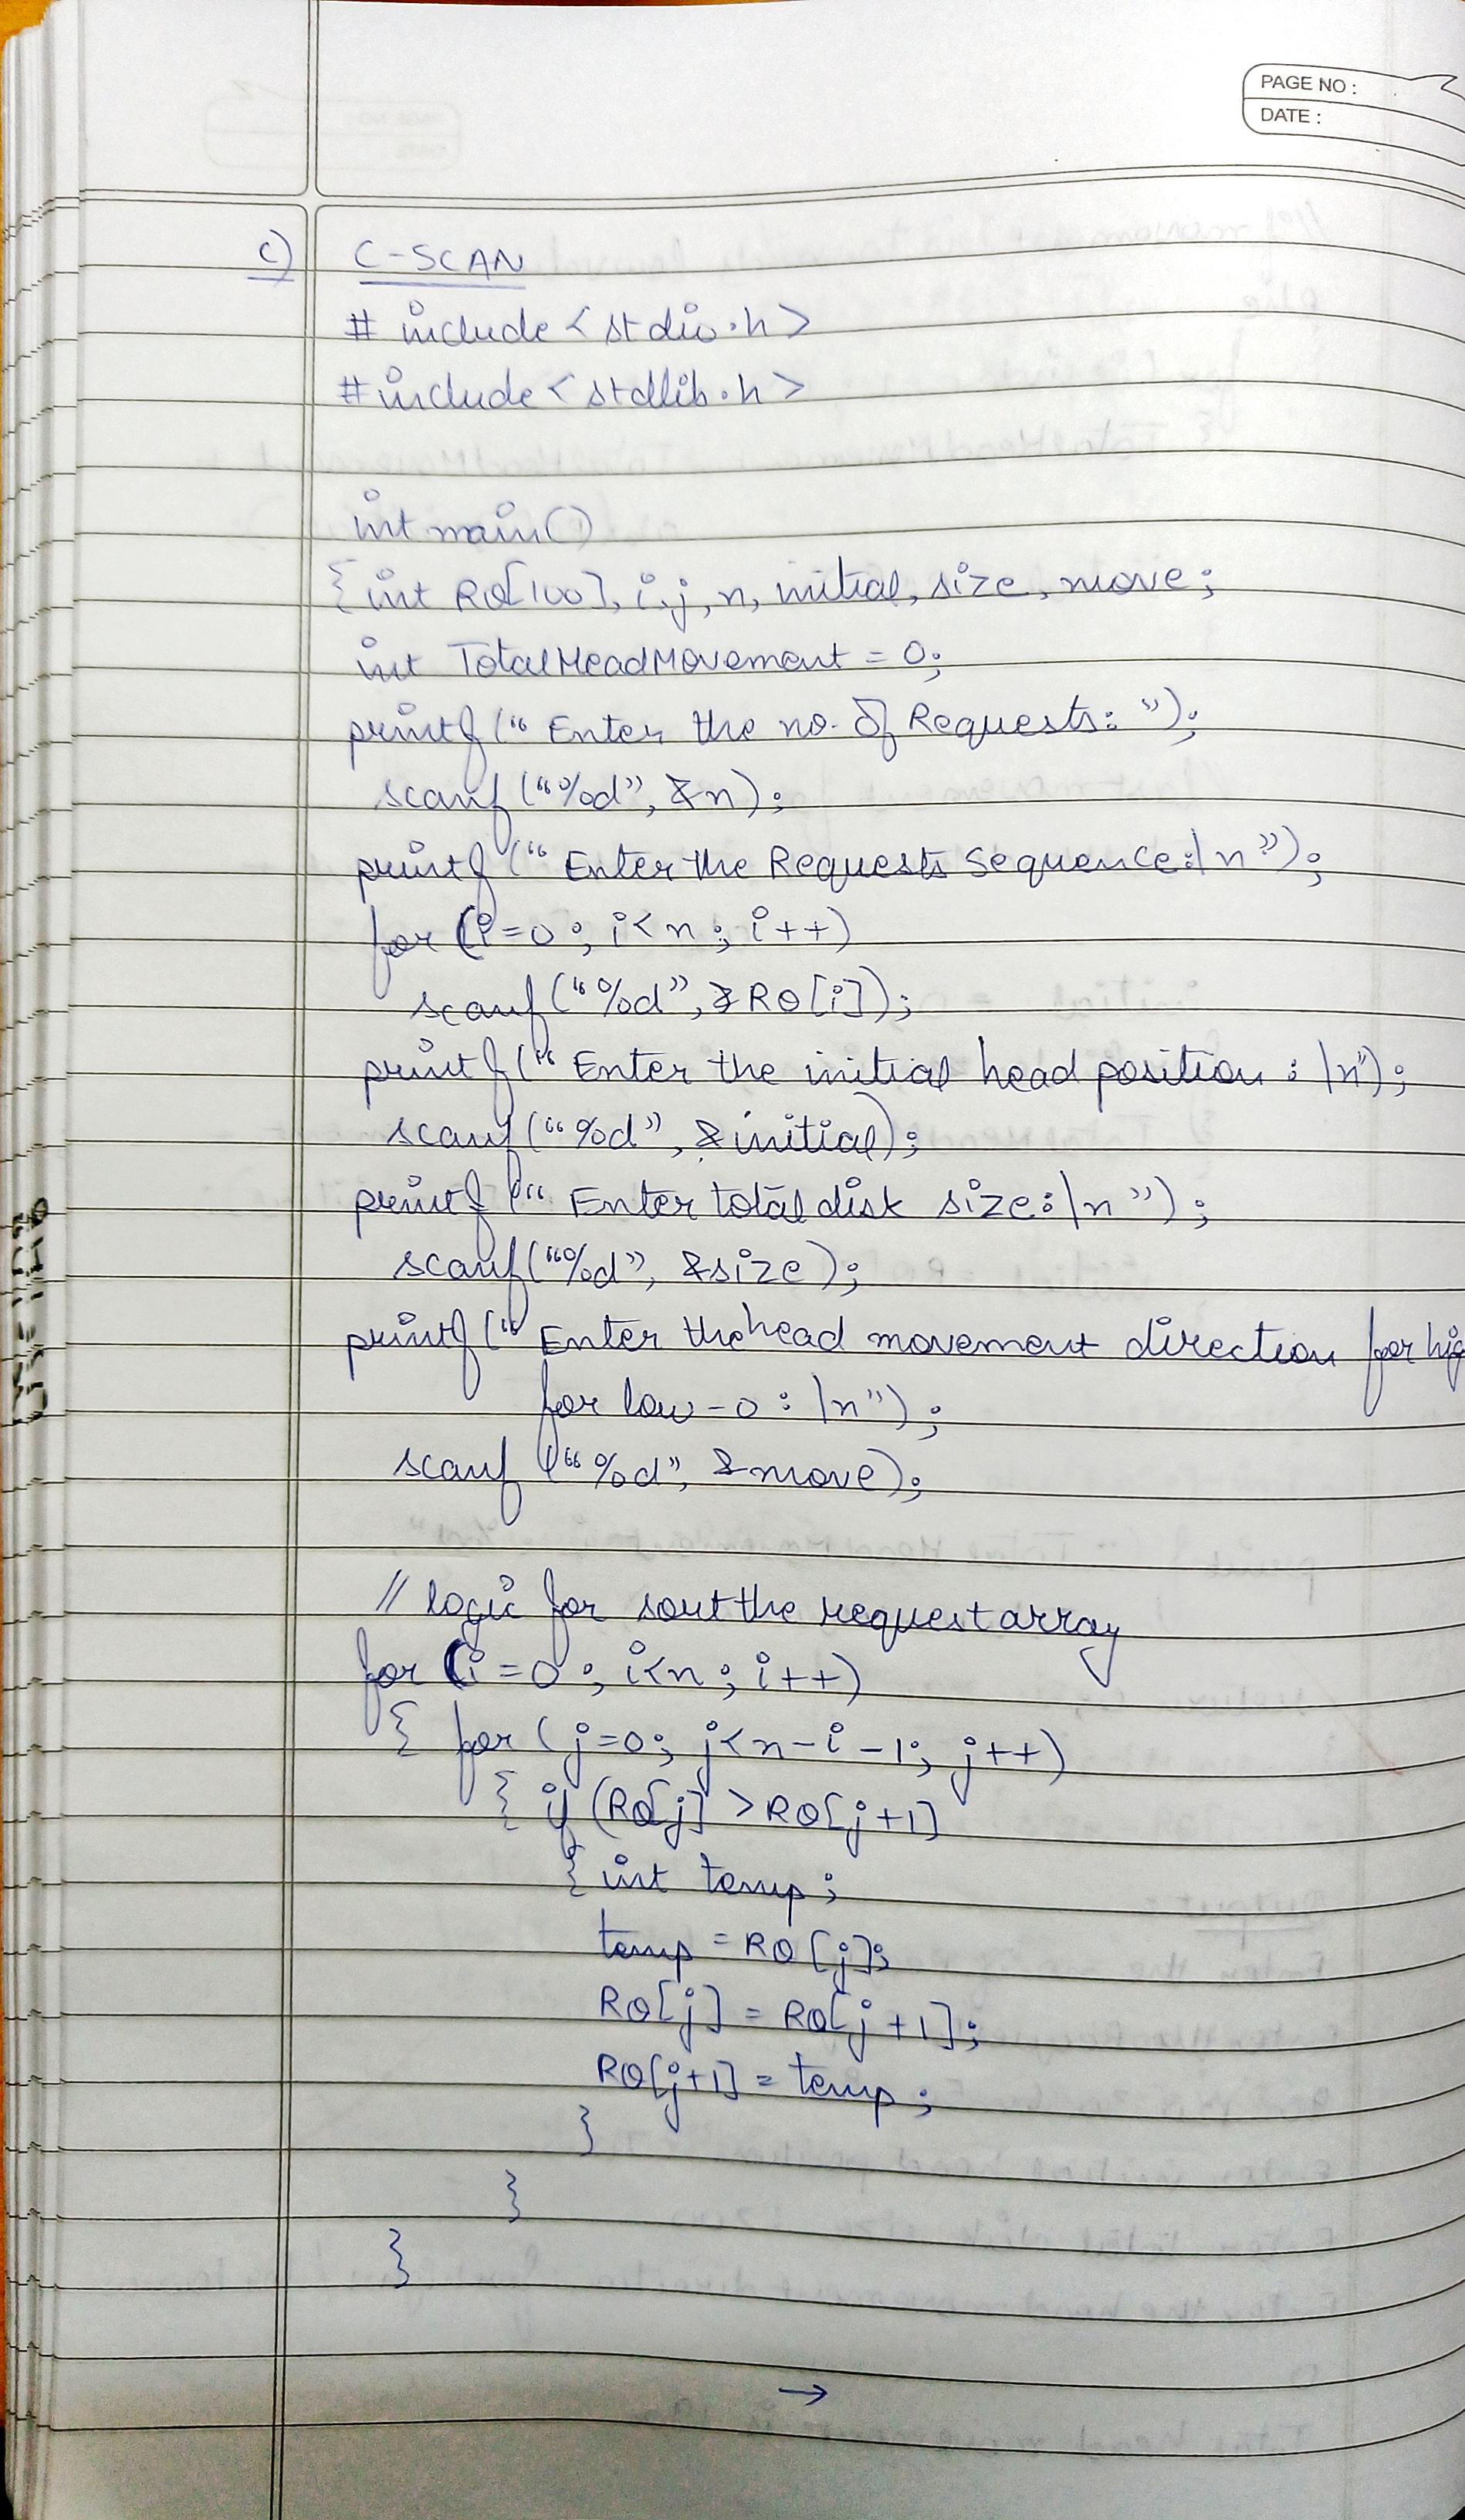 PAGE NO :
DATE :
c) C-SCAN
# include <stdio.h>
#include <stdlib.h>
int main()
{ int RQ[100], i, j, n, initial, size, move;
int TotalHeadMovement = 0;
printf(“ Enter the no. of Requests: ”);
scanf (“%d”, &n);
printf (“ Enter the Requests Sequence:\n ”);
for (i=0 ; i<n ; i++)
scanf (“%d”, &RQ[i]);
printf (“ Enter the initial head position : \n”);
scanf (“%d”, &initial);
printf (“ Enter total disk size:\n ”);
scanf (“%d”, &size);
printf (“ Enter the head movement direction for hig
for low - 0 : \n”);
scanf (“%d”, &move);
// logic for sort the request array
for (i=0 ; i<n ; i++)
{ for ( j=0; j<n-i-1; j++)
{ if (RQ[j] > RQ[j+1]
{ int temp;
temp = RQ[j];
RQ[j] = RQ[j+1];
RQ[j+1] = temp;
}
}
}
→